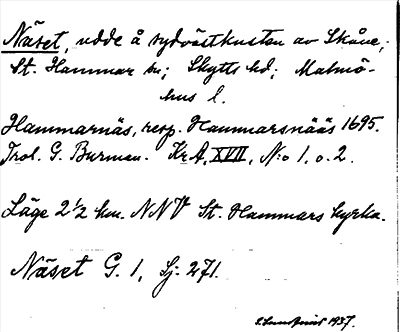 Näset, udde å sydvästkusten av Skåne,
St. Hammar sn; Skytts hd; Malmö-
hus l.
Hammarnäs, resp. Hammarsnääs 1695.
Trol. G. Burman. Kr A, XVII, N:o 1, o. 2.
Läge 2 1/2 km. NNV St. Hammars kyrka.
Näset G. 1, Sj. 271.
S. Lundqvist 1937.